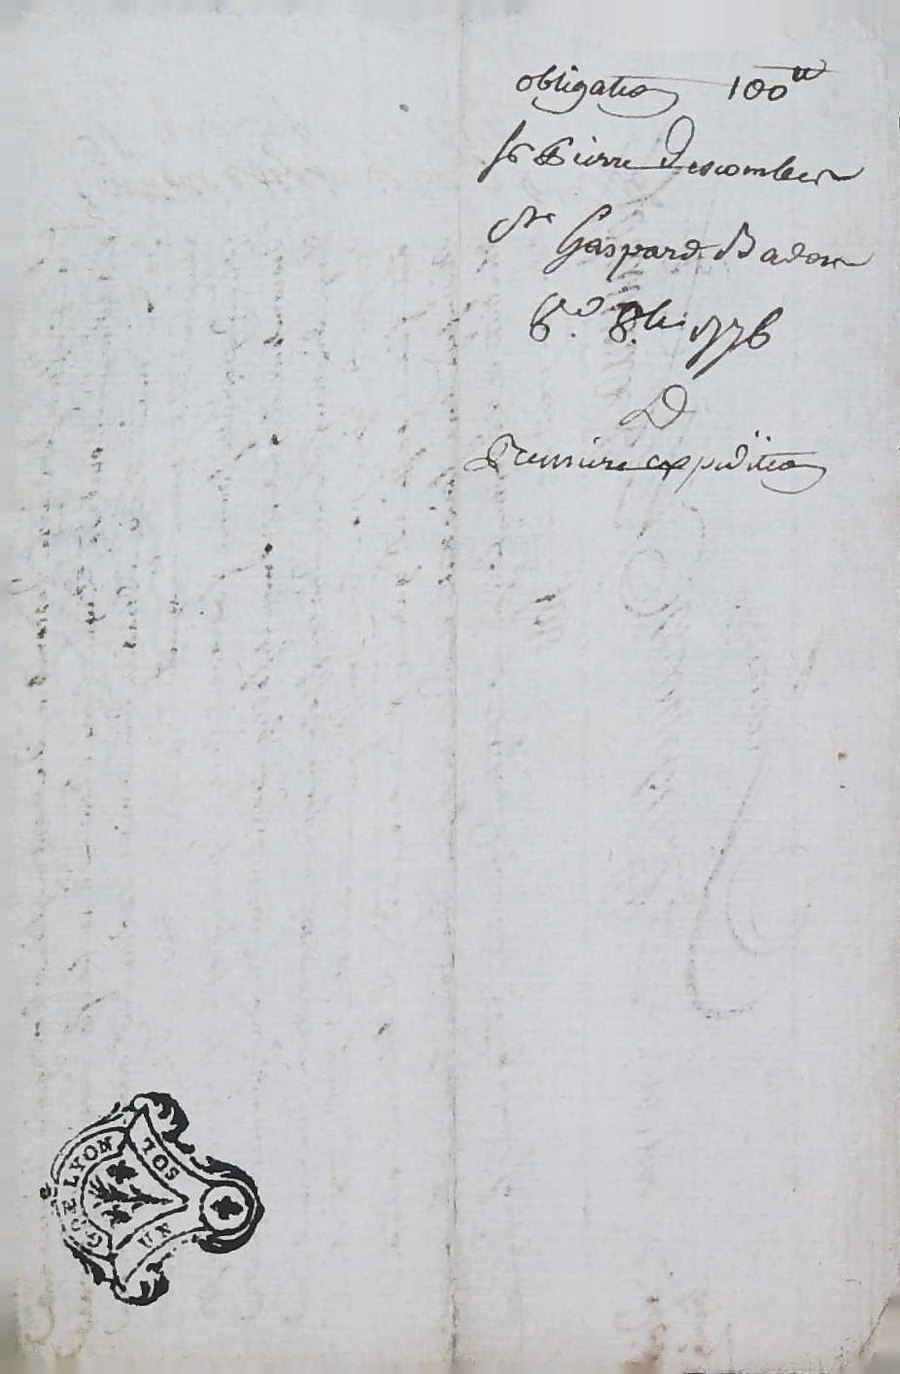 obligation 100 ₶
Sr Pierre Descombes
Sr Gaspard Badon
Du 8bre 1776
D
Premiere expedition
G DE LYON
UN SOL